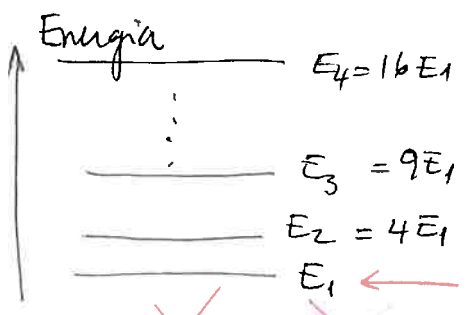 Energia
E₄ = 16 E₁
E₃ = 9E₁
E₂ = 4E₁
E₁